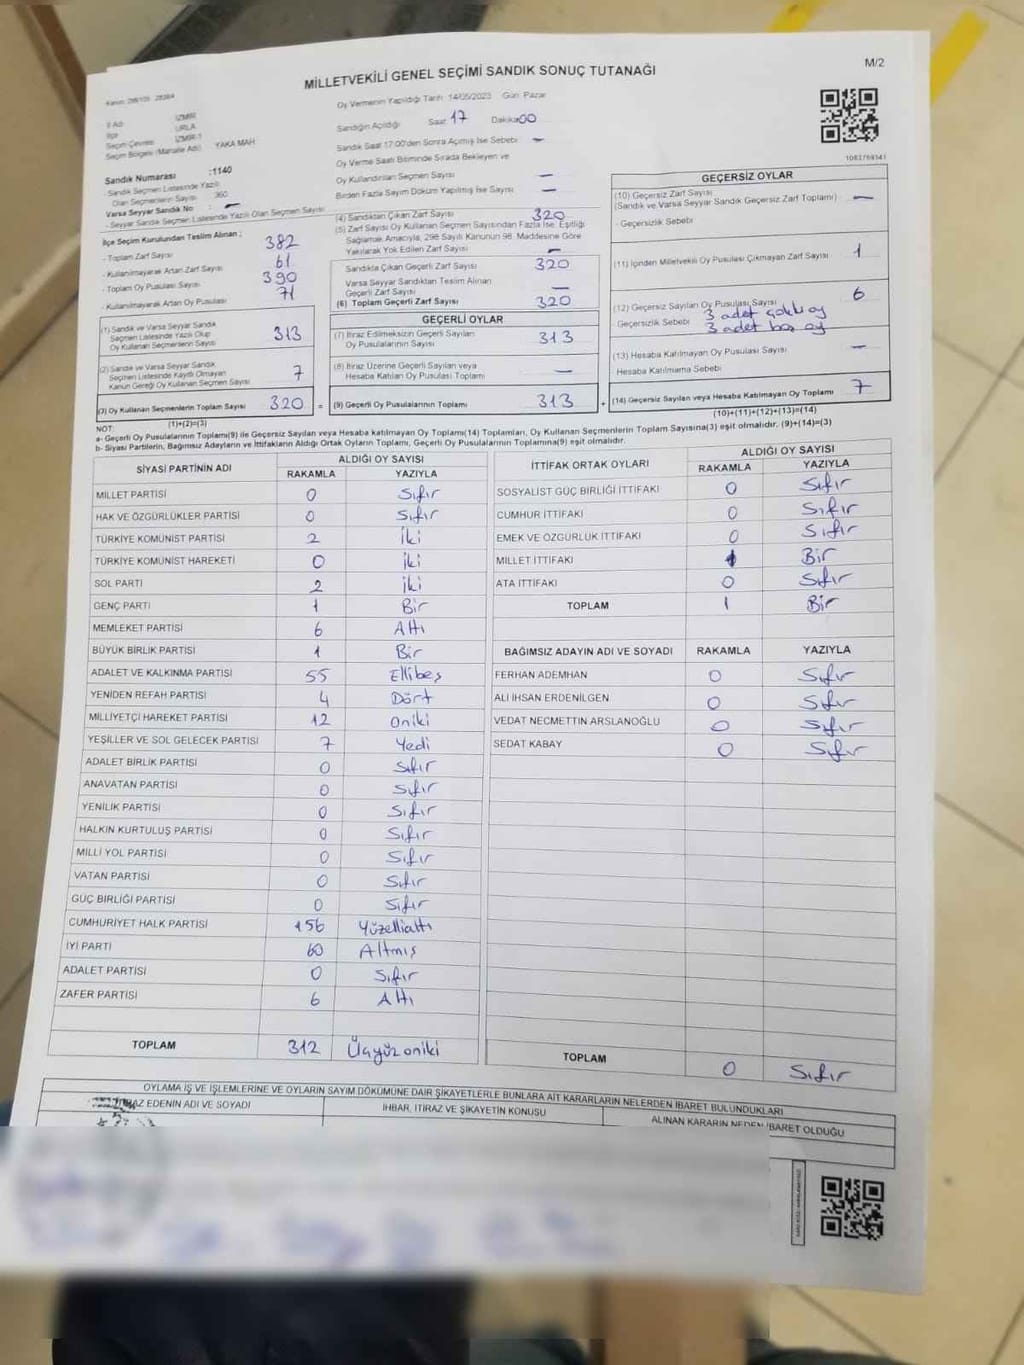 MİLLETVEKİLİ GENEL SEÇİMİ SANDIK SONUÇ TUTANAĞI
M/2
Oy Vermenin Yapıldığı Tarih 14/05/2023 Gün Pazar
İl Adı İZMİR
İlçe URLA
Seçim Çevresi İZMİR-1
Seçim Bölgesi (Mahalle Adı) YAKA MAH
Sandığın Açıldığı Saat 17 Dakika 00
Sandık Saat 17:00'den Sonra Açılmış İse Sebebi —
Oy Verme Saati Bitiminde Sırada Bekleyen ve
Oy Kullandırılan Seçmen Sayısı —
Birden Fazla Sayım Döküm Yapılmış İse Sayısı —
Sandık Numarası :1140
- Sandık Seçmen Listesinde Yazılı
Olan Seçmenlerin Sayısı 360
Varsa Seyyar Sandık No : —
- Seyyar Sandık Seçmen Listesinde Yazılı Olan Seçmen Sayısı
İlçe Seçim Kurulundan Teslim Alınan ;
- Toplam Zarf Sayısı 382
- Kullanılmayarak Artan Zarf Sayısı 61
- Toplam Oy Pusulası Sayısı 390
- Kullanılmayarak Artan Oy Pusulası 71
(1) Sandık ve Varsa Seyyar Sandık
Seçmen Listesinde Yazılı Olup
Oy Kullanan Seçmenlerin Sayısı 313
(2) Sandık ve Varsa Seyyar Sandık
Seçmen Listesinde Kayıtlı Olmayan
Kanun Gereği Oy Kullanan Seçmen Sayısı 7
(3) Oy Kullanan Seçmenlerin Toplam Sayısı 320 =
(1)+(2)=(3)
(4) Sandıktan Çıkan Zarf Sayısı 320
(5) Zarf Sayısı Oy Kullanan Seçmen Sayısından Fazla İse; Eşitliği
Sağlamak Amacıyla, 298 Sayılı Kanunun 98. Maddesine Göre
Yakılarak Yok Edilen Zarf Sayısı —
Sandıkta Çıkan Geçerli Zarf Sayısı 320
Varsa Seyyar Sandıktan Teslim Alınan
Geçerli Zarf Sayısı —
(6) Toplam Geçerli Zarf Sayısı 320
GEÇERLİ OYLAR
(7) İtiraz Edilmeksizin Geçerli Sayılan
Oy Pusulalarının Sayısı 313
(8) İtiraz Üzerine Geçerli Sayılan veya
Hesaba Katılan Oy Pusulası Toplamı —
(9) Geçerli Oy Pusulalarının Toplamı 313 +
1083769141
GEÇERSİZ OYLAR
(10) Geçersiz Zarf Sayısı
(Sandık ve Varsa Seyyar Sandık Geçersiz Zarf Toplamı) —
- Geçersizlik Sebebi
(11) İçinden Milletvekili Oy Pusulası Çıkmayan Zarf Sayısı 1
(12) Geçersiz Sayılan Oy Pusulası Sayısı 6
Geçersizlik Sebebi 3 adet çoklu oy
3 adet boş oy
(13) Hesaba Katılmayan Oy Pusulası Sayısı —
Hesaba Katılmama Sebebi
(14) Geçersiz Sayılan veya Hesaba Katılmayan Oy Toplamı 7
(10)+(11)+(12)+(13)=(14)
NOT:
a- Geçerli Oy Pusulalarının Toplamı(9) ile Geçersiz Sayılan veya Hesaba katılmayan Oy Toplamı(14) Toplamları, Oy Kullanan Seçmenlerin Toplam Sayısına(3) eşit olmalıdır. (9)+(14)=(3)
b- Siyasi Partilerin, Bağımsız Adayların ve İttifakların Aldığı Ortak Oyların Toplamı, Geçerli Oy Pusulalarının Toplamına(9) eşit olmalıdır.
SİYASİ PARTİNİN ADI ALDIĞI OY SAYISI
RAKAMLA YAZIYLA
MİLLET PARTİSİ 0 Sıfır
HAK VE ÖZGÜRLÜKLER PARTİSİ 0 Sıfır
TÜRKİYE KOMÜNİST PARTİSİ 2 İki
TÜRKİYE KOMÜNİST HAREKETİ 0 İki
SOL PARTİ 2 İki
GENÇ PARTİ 1 Bir
MEMLEKET PARTİSİ 6 Altı
BÜYÜK BİRLİK PARTİSİ 1 Bir
ADALET VE KALKINMA PARTİSİ 55 Ellibeş
YENİDEN REFAH PARTİSİ 4 Dört
MİLLİYETÇİ HAREKET PARTİSİ 12 Oniki
YEŞİLLER VE SOL GELECEK PARTİSİ 7 Yedi
ADALET BİRLİK PARTİSİ 0 Sıfır
ANAVATAN PARTİSİ 0 Sıfır
YENİLİK PARTİSİ 0 Sıfır
HALKIN KURTULUŞ PARTİSİ 0 Sıfır
MİLLİ YOL PARTİSİ 0 Sıfır
VATAN PARTİSİ 0 Sıfır
GÜÇ BİRLİĞİ PARTİSİ 0 Sıfır
CUMHURİYET HALK PARTİSİ 156 Yüzellialtı
İYİ PARTİ 60 Altmış
ADALET PARTİSİ 0 Sıfır
ZAFER PARTİSİ 6 Altı
TOPLAM 312 Üçyüzoniki
İTTİFAK ORTAK OYLARI ALDIĞI OY SAYISI
RAKAMLA YAZIYLA
SOSYALİST GÜÇ BİRLİĞİ İTTİFAKI 0 Sıfır
CUMHUR İTTİFAKI 0 Sıfır
EMEK VE ÖZGÜRLÜK İTTİFAKI 0 Sıfır
MİLLET İTTİFAKI 1 Bir
ATA İTTİFAKI 0 Sıfır
TOPLAM 1 Bir
BAĞIMSIZ ADAYIN ADI VE SOYADI RAKAMLA YAZIYLA
FERHAN ADEMHAN 0 Sıfır
ALİ İHSAN ERDENİLGEN 0 Sıfır
VEDAT NECMETTİN ARSLANOĞLU 0 Sıfır
SEDAT KABAY 0 Sıfır
TOPLAM 0 Sıfır
OYLAMA İŞ VE İŞLEMLERİNE VE OYLARIN SAYIM DÖKÜMÜNE DAİR ŞİKAYETLERLE BUNLARA AİT KARARLARIN NELERDEN İBARET BULUNDUKLARI
EDENİN ADI VE SOYADI
İHBAR, İTİRAZ VE ŞİKAYETİN KONUSU
ALINAN KARARIN NEDEN İBARET OLDUĞU